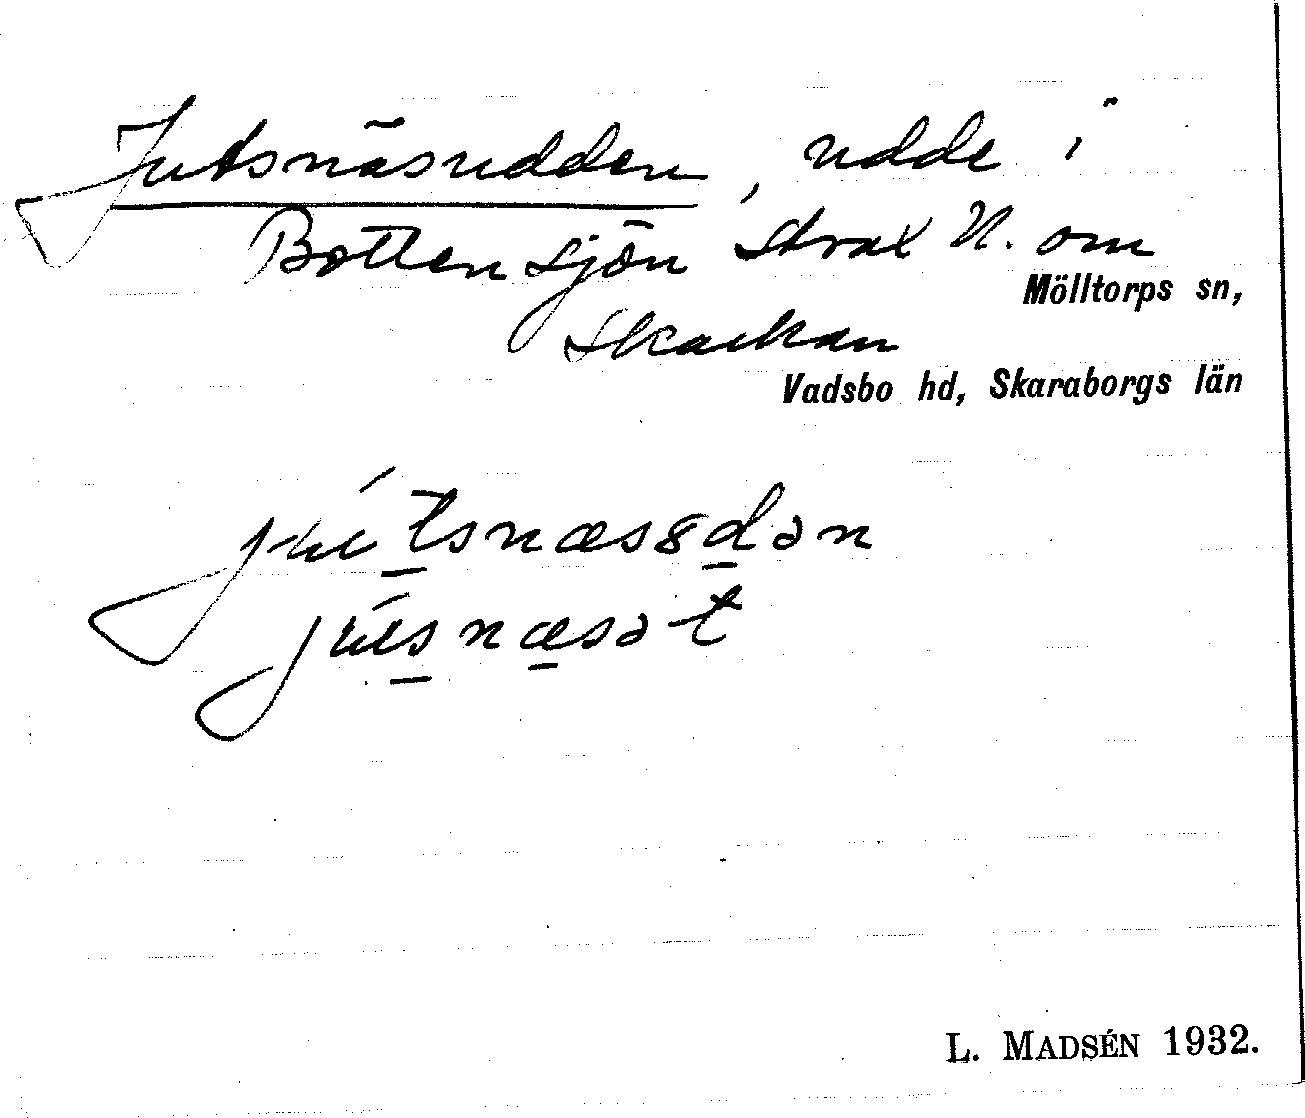 Jutsnäsudden, udde i
Bottensjön strax N. om
Mölltorps sn,
Skackan
Vadsbo hd, Skaraborgs län
jútsnæsȣdən
júsnæsət
L. MADSÉN 1932.